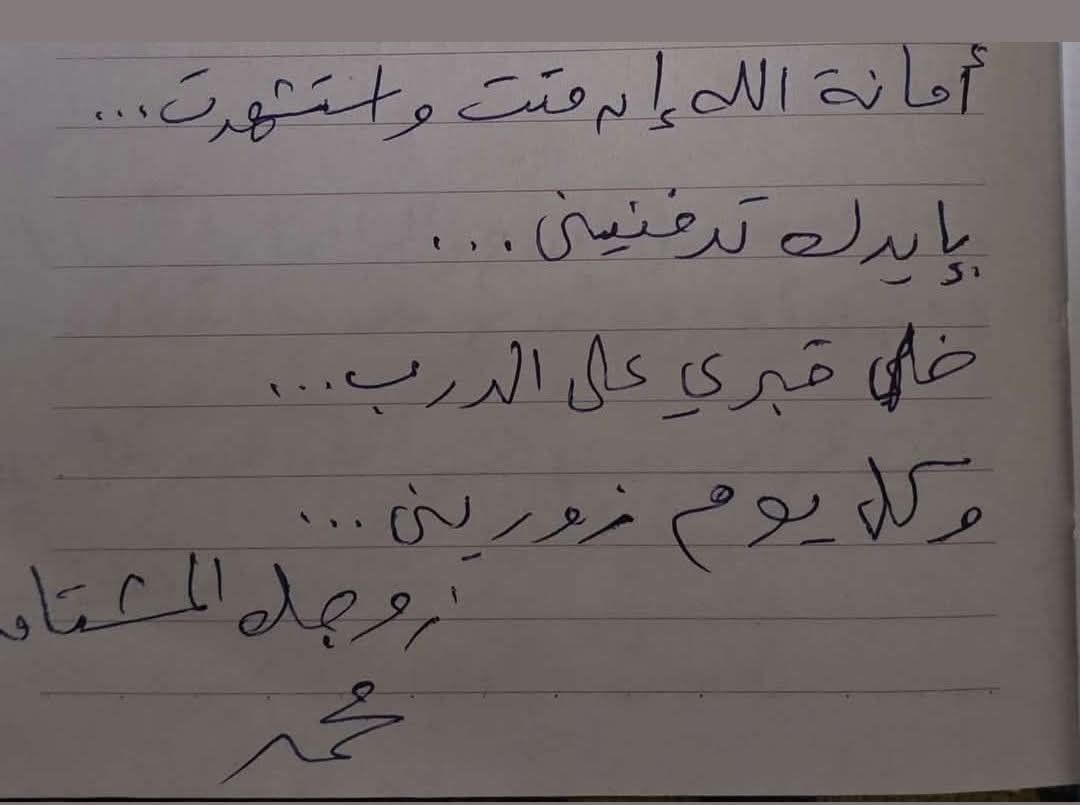 أمانة الله إن متت واستشهدت...
بإيدك تدفنيني...
خلي قبري على الدرب...
وكل يوم زوريني...
زوجك المشتاق
محمد